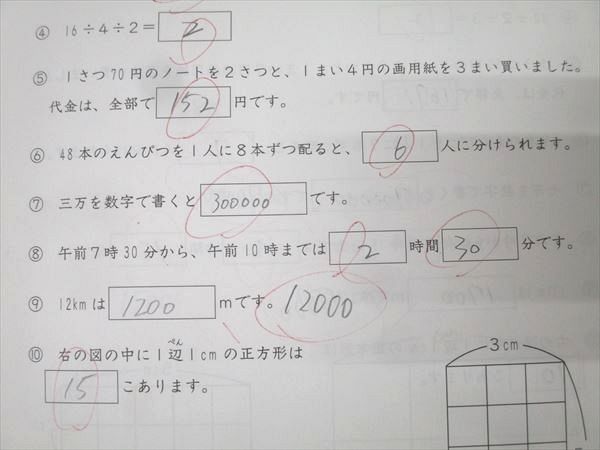 ④ 16÷4÷2= 2
⑤ 1さつ70円のノートを2さつと、1まい4円の画用紙を3まい買いました。
代金は、全部で 152 円です。
⑥ 48本のえんぴつを1人に8本ずつ配ると、 6 人に分けられます。
⑦ 三万を数字で書くと 300000 です。
⑧ 午前7時30分から、午前10時までは 2 時間 30 分です。
⑨ 12kmは 1200 mです。 12000
⑩ 右の図の中に1辺1cmの正方形は
ぺん
15 こあります。
3cm